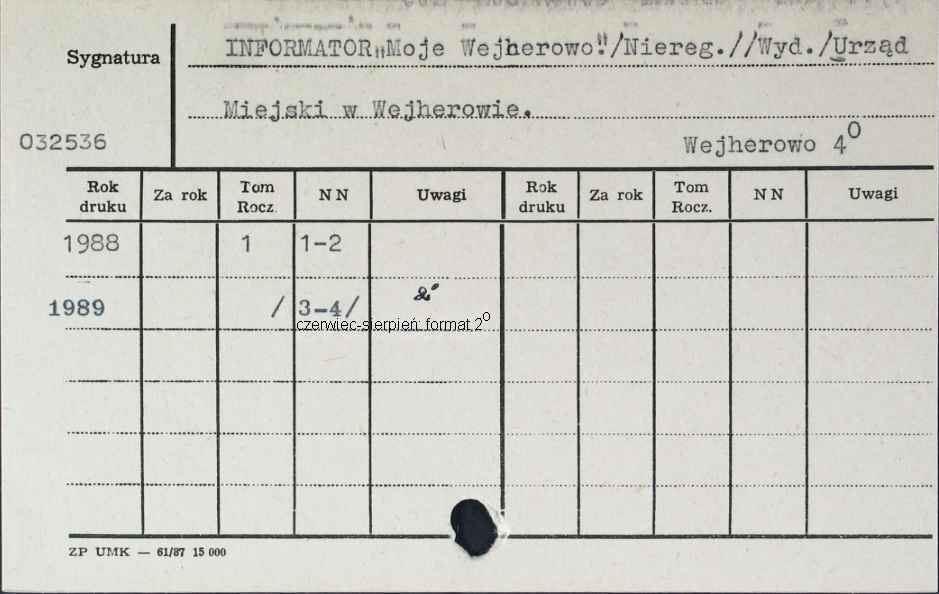 INFORMATOR „Moje Wejherowo"./Niereg.//Wyd./Urząd
Sygnatura
Miejski w Wejherowie.
032536
Wejherowo 4⁰
Rok druku Za rok Tom Rocz. N N Uwagi Rok druku Za rok Tom Rocz. N N Uwagi
1988 1 1-2
1989 / 3-4/ 2⁰
czerwiec-sierpień format 2⁰
ZP UMK — 61/87 15 000